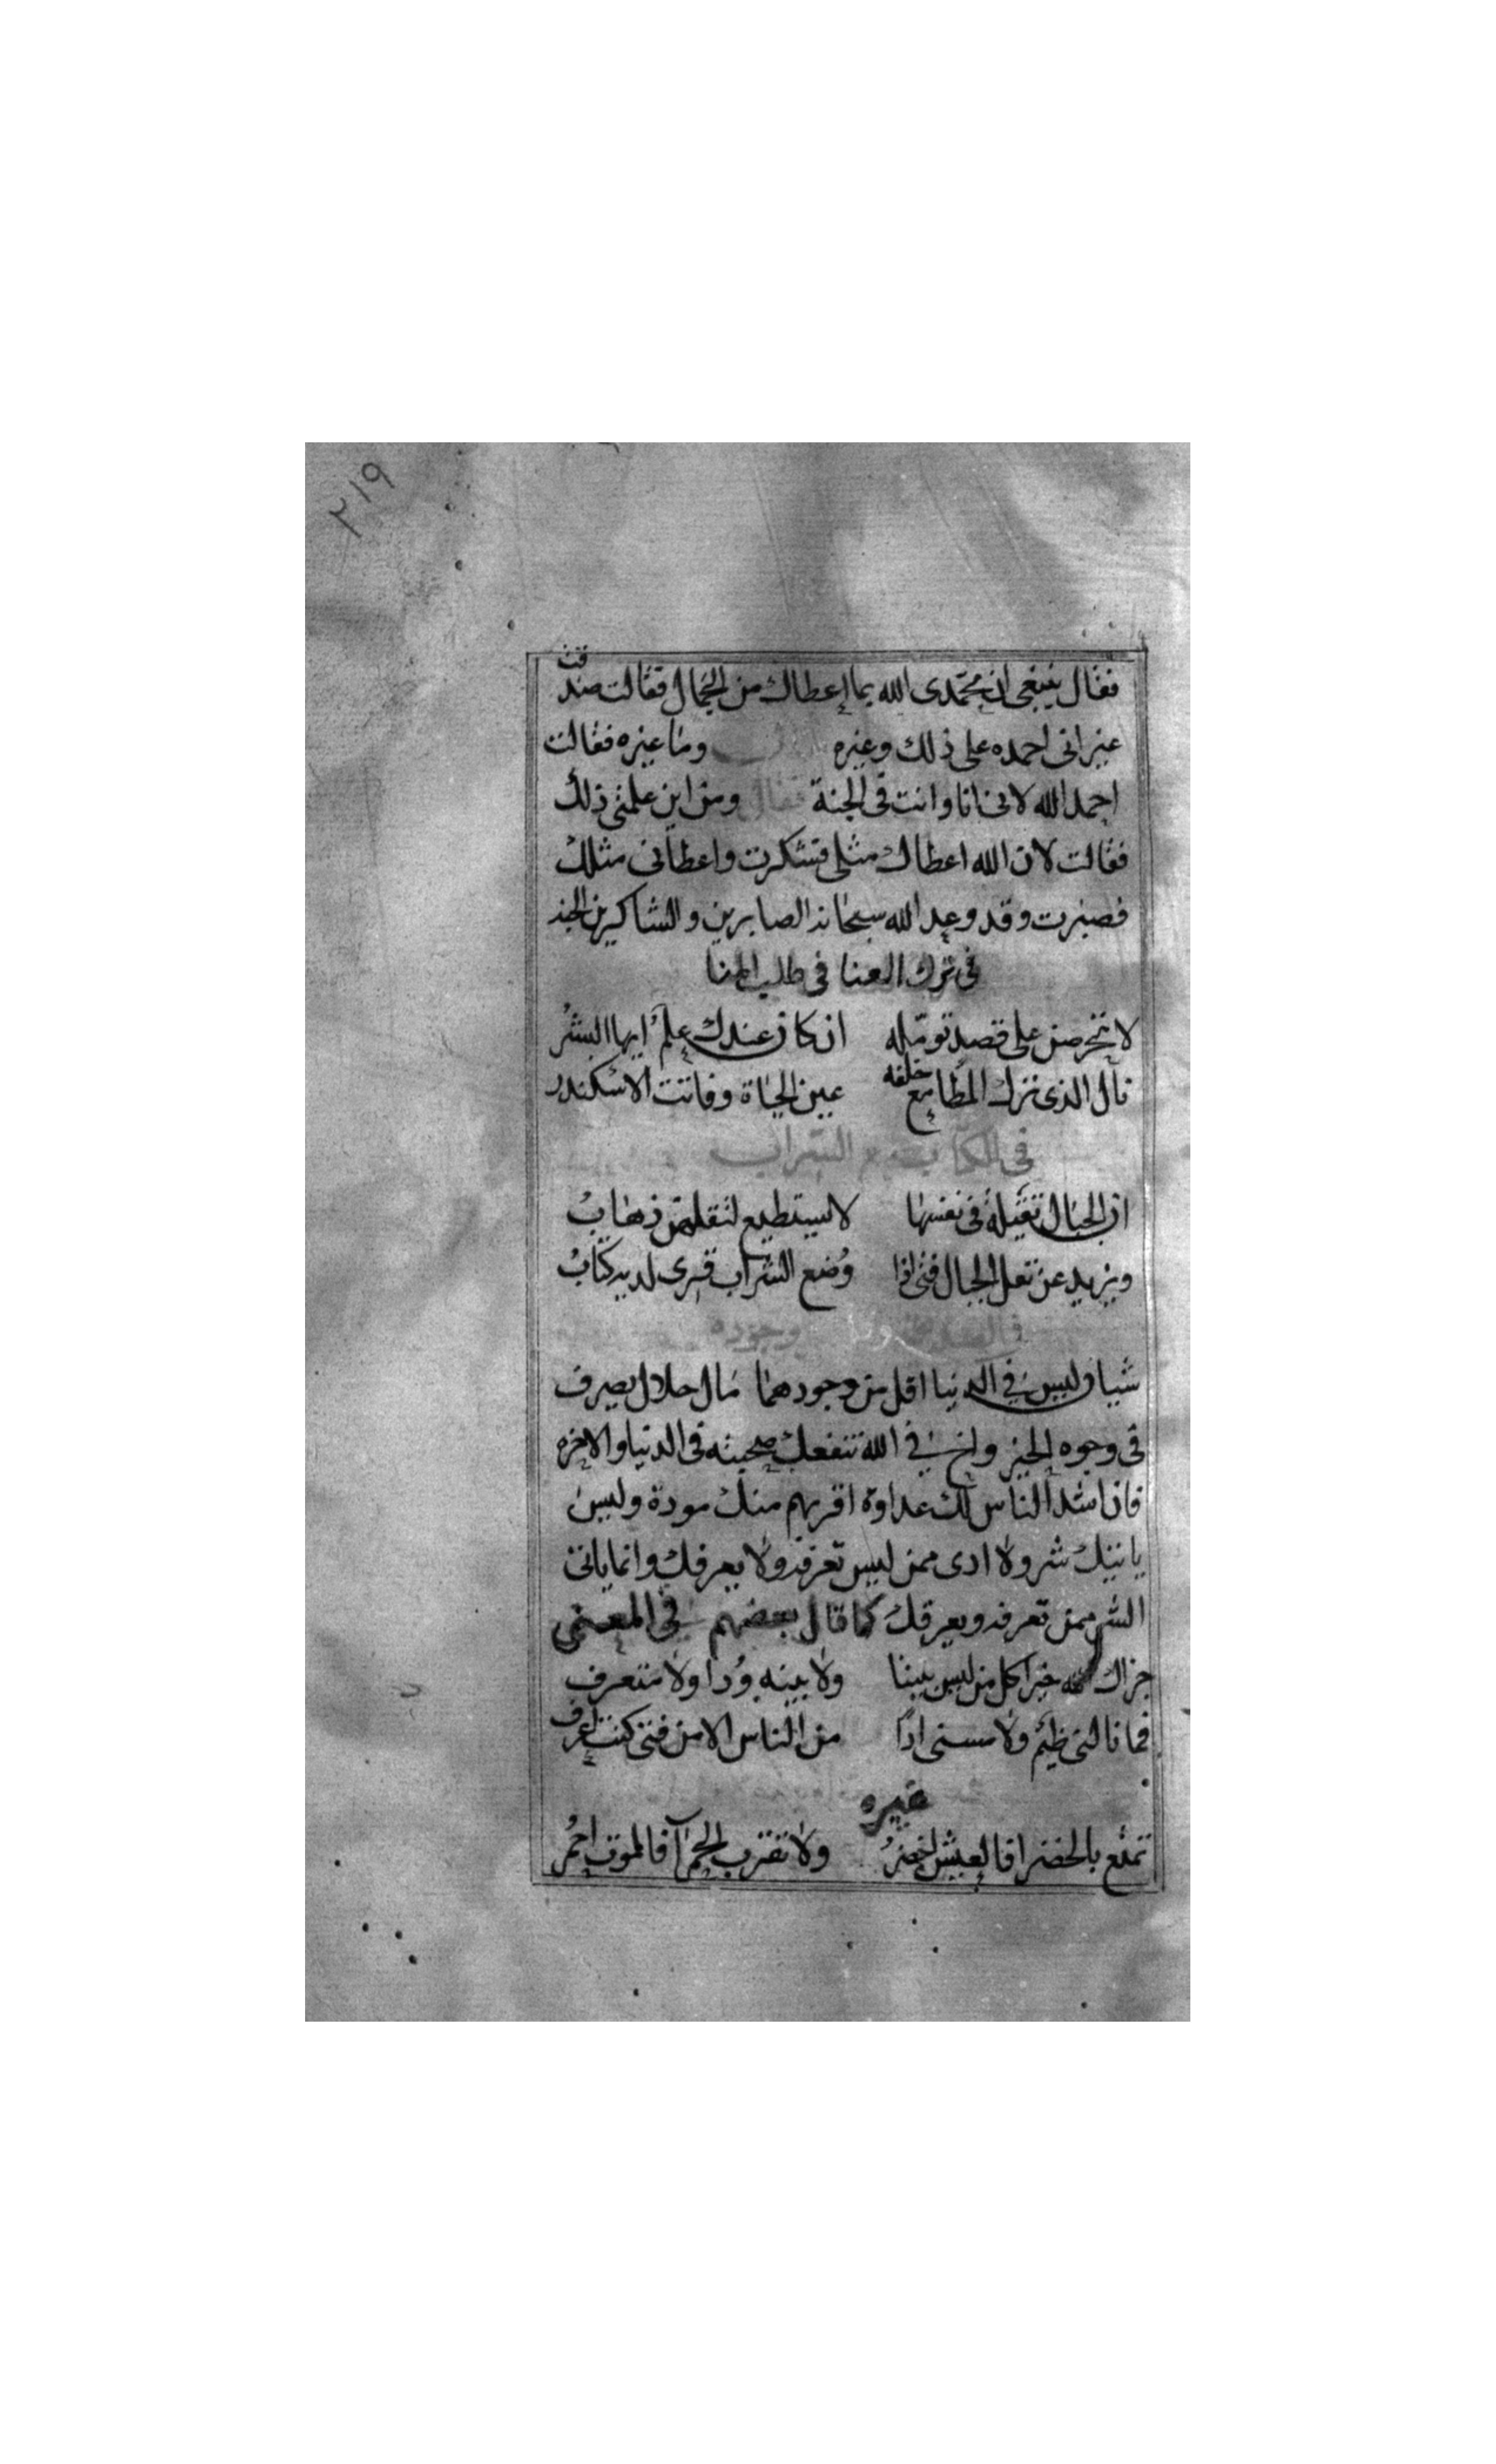 ٢١٩
فقال ينبغى ان تحمدى الله بما اعطاك من الجمال فقالت صدقت
غير انى احمده على ذلك وغيره وما غيره فقالت
احمد الله لانى انا وانت فى الجنة فقال ومن اين علمتى ذلك
فقالت لان الله اعطاك مثلى فشكرت واعطانى مثلك
فصبرت وقد وعد الله سبحانه الصابرين والشاكرين الجنه
فى ترك العنا فى طلب الهنا
لا تحرصن على قصد تومّله ان كان عندك علمٌ ايها البشرُ
نال الذى ترك المطامع خلفه عين الحياة وفاتت الاسكندر
فى الشراب
ان الجبال ثقيلةٌ فى نفسها لا يستطيع لثقلهن ذهابُ
ويزيد عن ثقل الجبال فتى اذا وُضع الشراب قرى لديه كتابُ
وجوده
شيان ليس فى الدنيا اقل من وجودهما مال حلال يصرف
فى وجوه الخير واخ فى الله تنفعك صحبته فى الدنيا والاخره
فان اشد الناس لك عداوة اقربهم منك مودة وليس
ياتيك شر ولا ادى ممن ليس تعرفه ولا يعرفك وانما ياتى
الشر ممن تعرفه ويعرفك كما قال بعضهم فى المعنى
جزاك الله خيرا كل من ليس بيننا ولا بينه وُدا ولا متعرف
فما نالنى ظيمٌ ولا مسنى اذًا من الناس الا من فتى كنت اعرف
غيره
تمتع بالخضرا فالعيش اخضرُ ولا تقترب الحمرآ فالموت احمُر